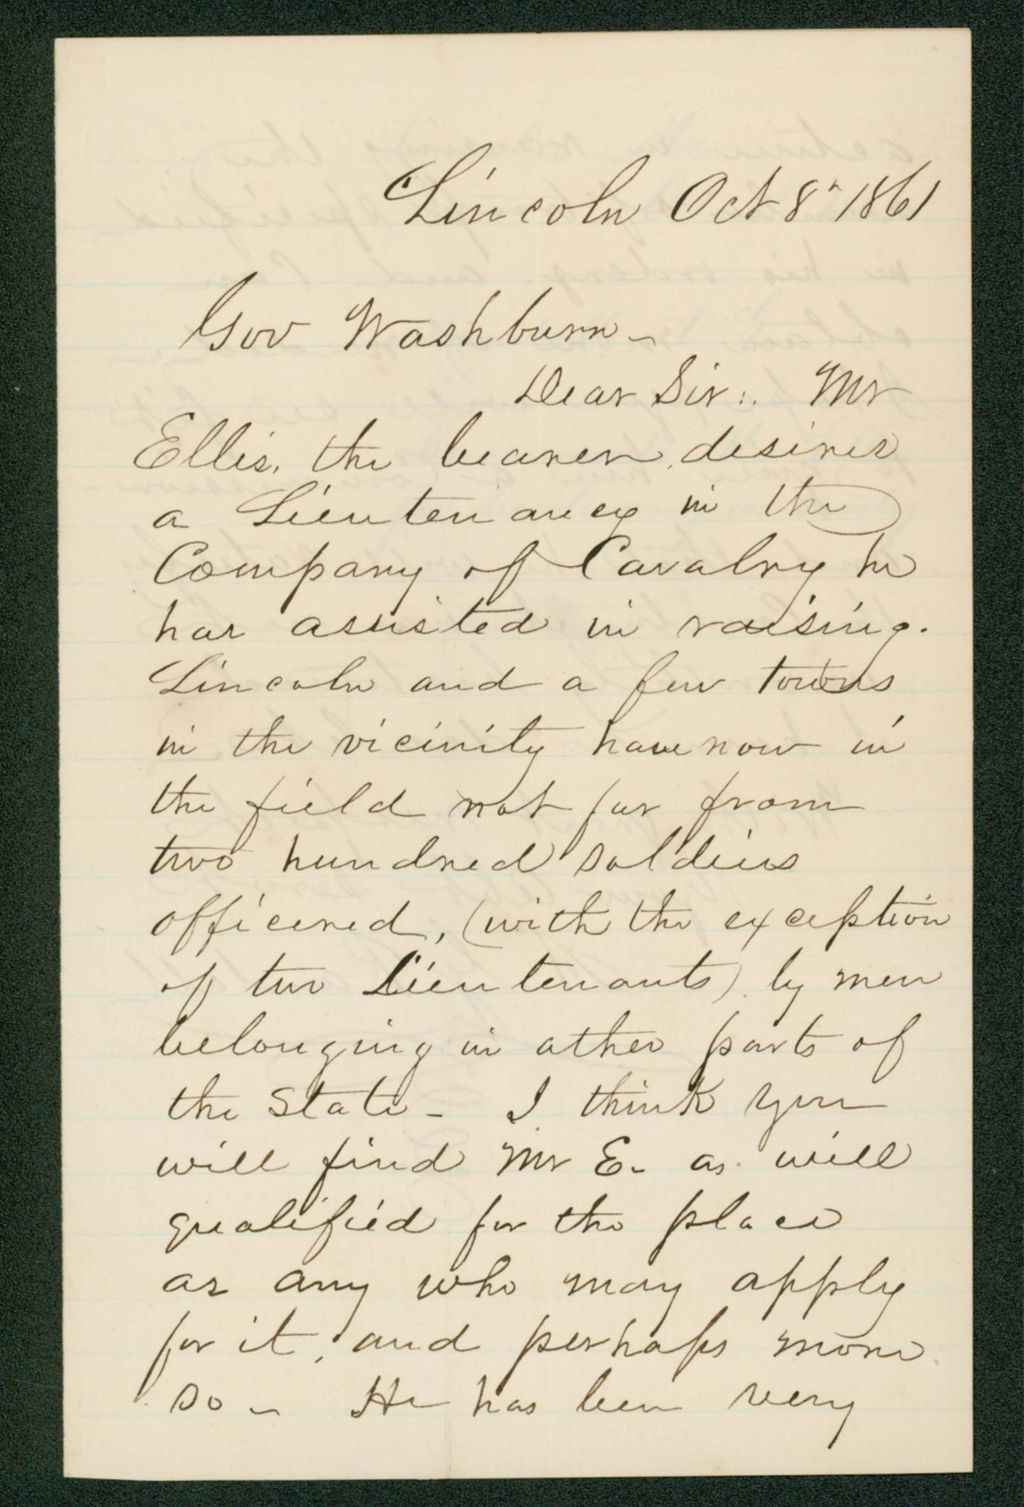 Lincoln Oct 8" 1861
Gov Washburn -
Dear Sir:. Mr
Ellis, the bearer, desires
a Lieutenancy in the
Company of Cavalry he
has assisted in raising.
Lincoln and a few towns
in the vicinity have now in
the field not far from
two hundred soldiers
officered, (with the exception
of two Lieutenants) by men
belonging in other parts of
the State - I think you
will find Mr E. as well
qualified for the place
as any who may apply
for it, and perhaps more
so - He has been very